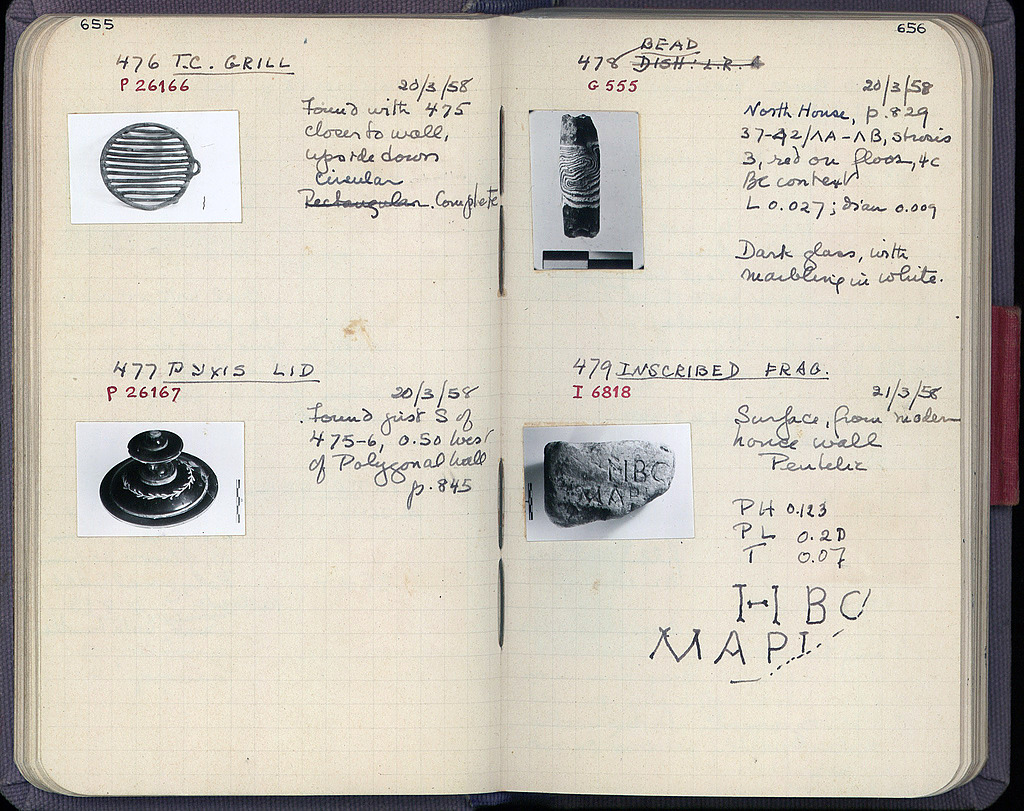 655
476 T.C. GRILL
P 26166
20/3/58
Found with 475
closer to wall,
upside down
Circular
Rectangular. Complete
477 PYXIS LID
P 26167
20/3/58
Found just S of
475-6, 0.50 West
of Polygonal wall
p. 845
656
BEAD
478 DISH: L.R.
G 555
20/3/58
North House, p. 829
37-42/ΛA-ΛB, Strosis
3, red on floor, 4c
BC context
L 0.027; diam 0.009
Dark glass, with
marbling in white.
479 INSCRIBED FRAG.
I 6818
21/3/58
Surface, from modern
house wall
Pentelic
HBC
MAPI
PH 0.123
PL 0.20
T 0.07
HBC
MAPI